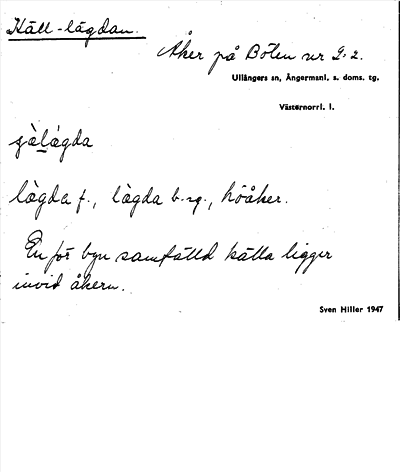 Käll-lägdan.
Åker på Bölen nr 9:2.
Ullångers sn, Ångermanl. s. doms. tg.
Västernorrl. l.
lägda f., lägda b. sg., höåker.
En för byn samfälld källa ligger
invid åkern.
Sven Hiller 1947